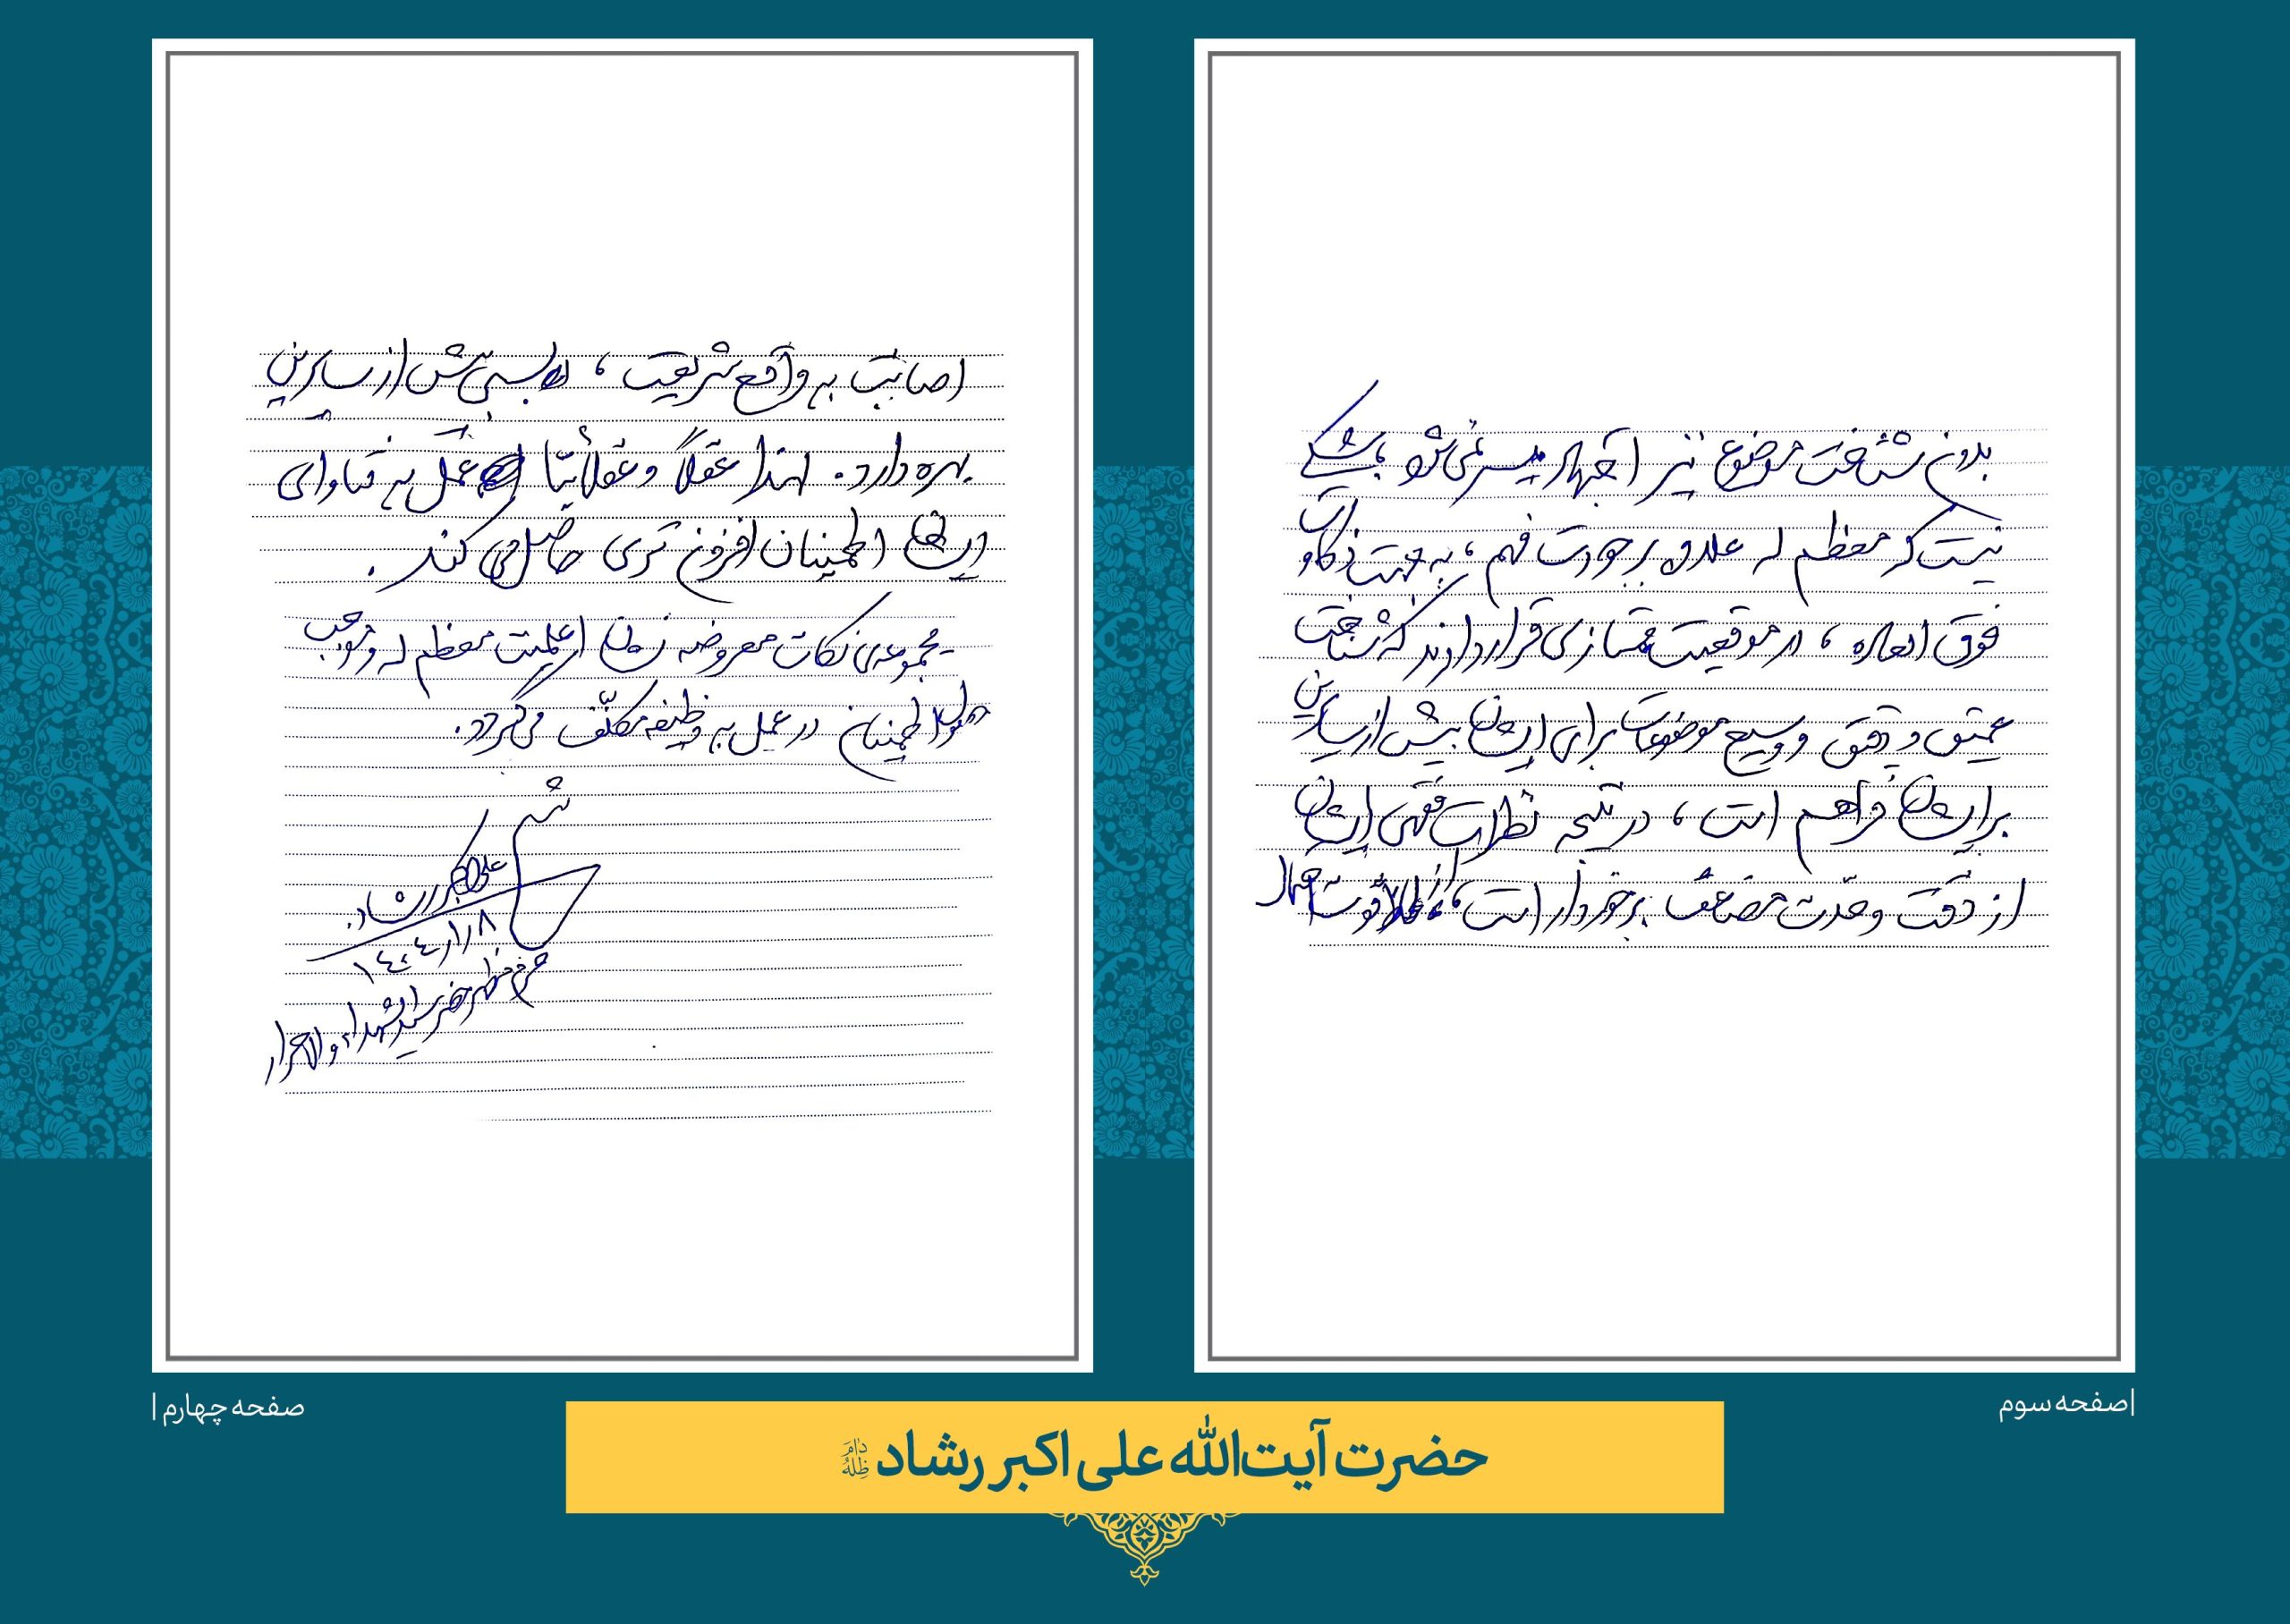 بدون شناخت موضوع نیز اجتهاد میسر نمی‌شود، شکی
نیست که معظم له علاوه بر جودت فهم، به جهت ذکاوت
فوق العاده، در موقعیت ممتازی قرار دارند که شناخت
عمیق و دقیق و وسیع موضوعات برای ایشان بیش از سایرین
برایشان فراهم است، در نتیجه نظرات فقهی ایشان
از دقت و قدرت مضاعف برخوردار است، از قوت احتمال
صفحه سوم
اصابت به واقع شریعت، بیش از سایرین
بهره دارد. لهذا عقلاً و عقلائیاً عمل به فتاوای
ایشان اطمینان افزون تری حاصل می کند.
- مجموعه‌ی نکات معروضه نشان از اعلمیت معظم له و موجب
اطمینان در عمل به وظیفه مکلّف می‌گردد.
علی اکبر رشاد
۱۴۰۴/۱/۸
سیدالشهداء و الاحرار
صفحه چهارم
حضرت آیت‌الله علی اکبر رشاد دام ظله